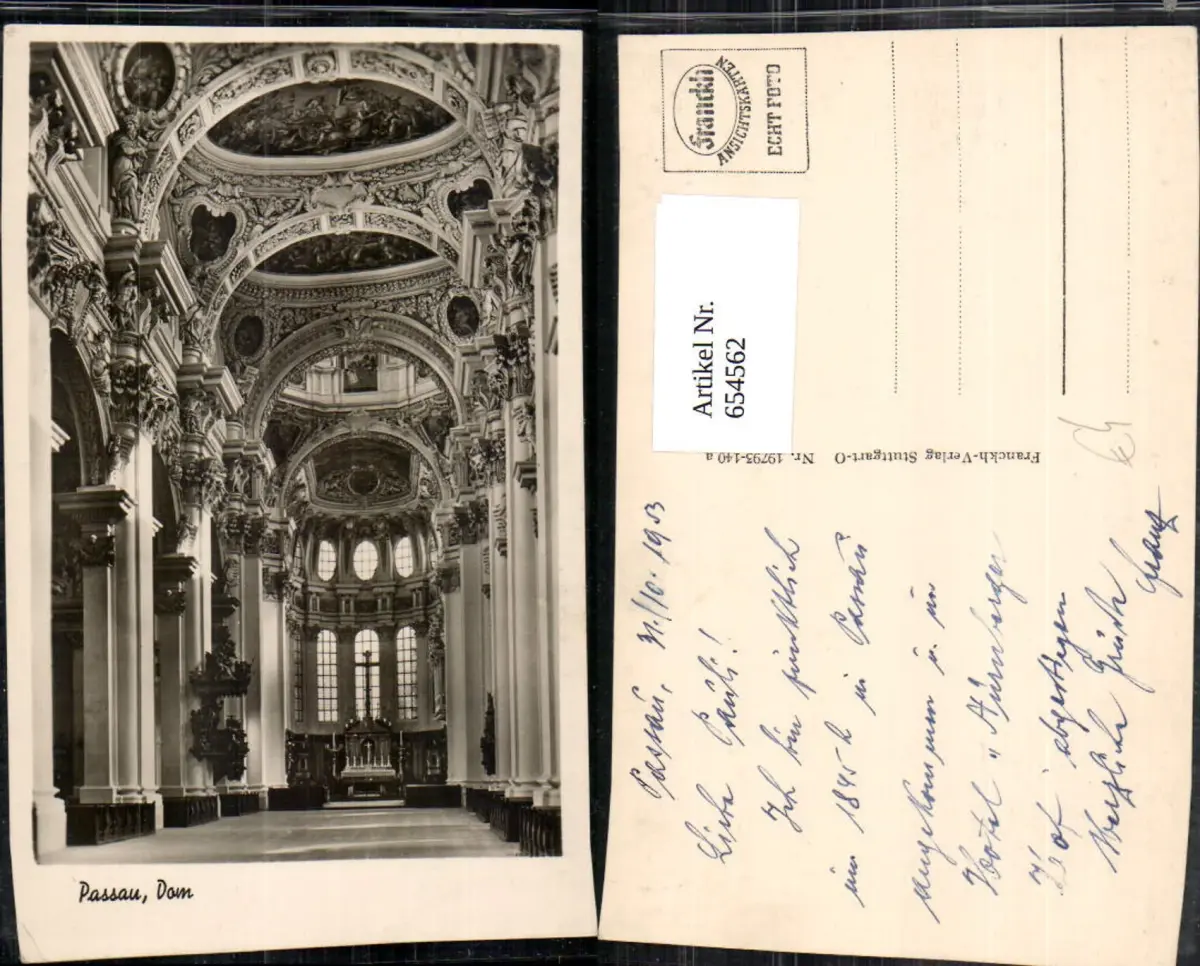 Passau, Dom
Franckh
ANSICHTSKARTEN
ECHT FOTO
Artikel Nr.
654562
Franckh-Verlag Stuttgart-O Nr. 19793-140 a
Passau, 1953
Liebe Pauli!
Ich bin pünktlich
um 1845 h in Passau
angekommen u. im
Hotel „Nürnberger
Hof abgestiegen
Herzliche Grüße
Franz